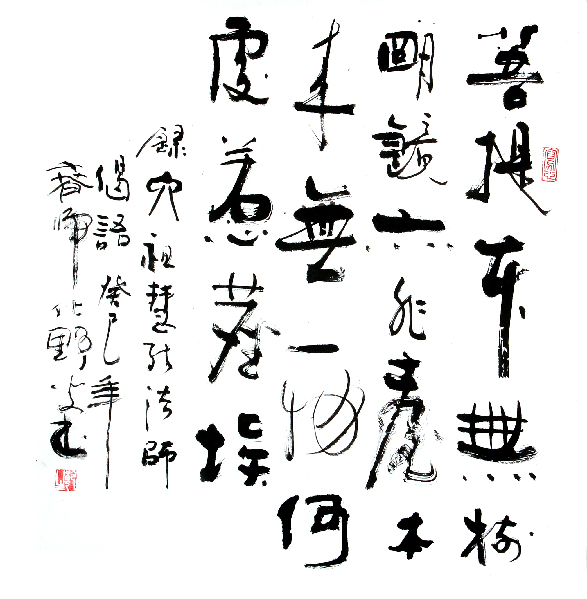 菩提本無樹
明鏡亦非臺本
来無一物何
處惹塵埃
錄六祖慧能法師
偈語 癸巳年